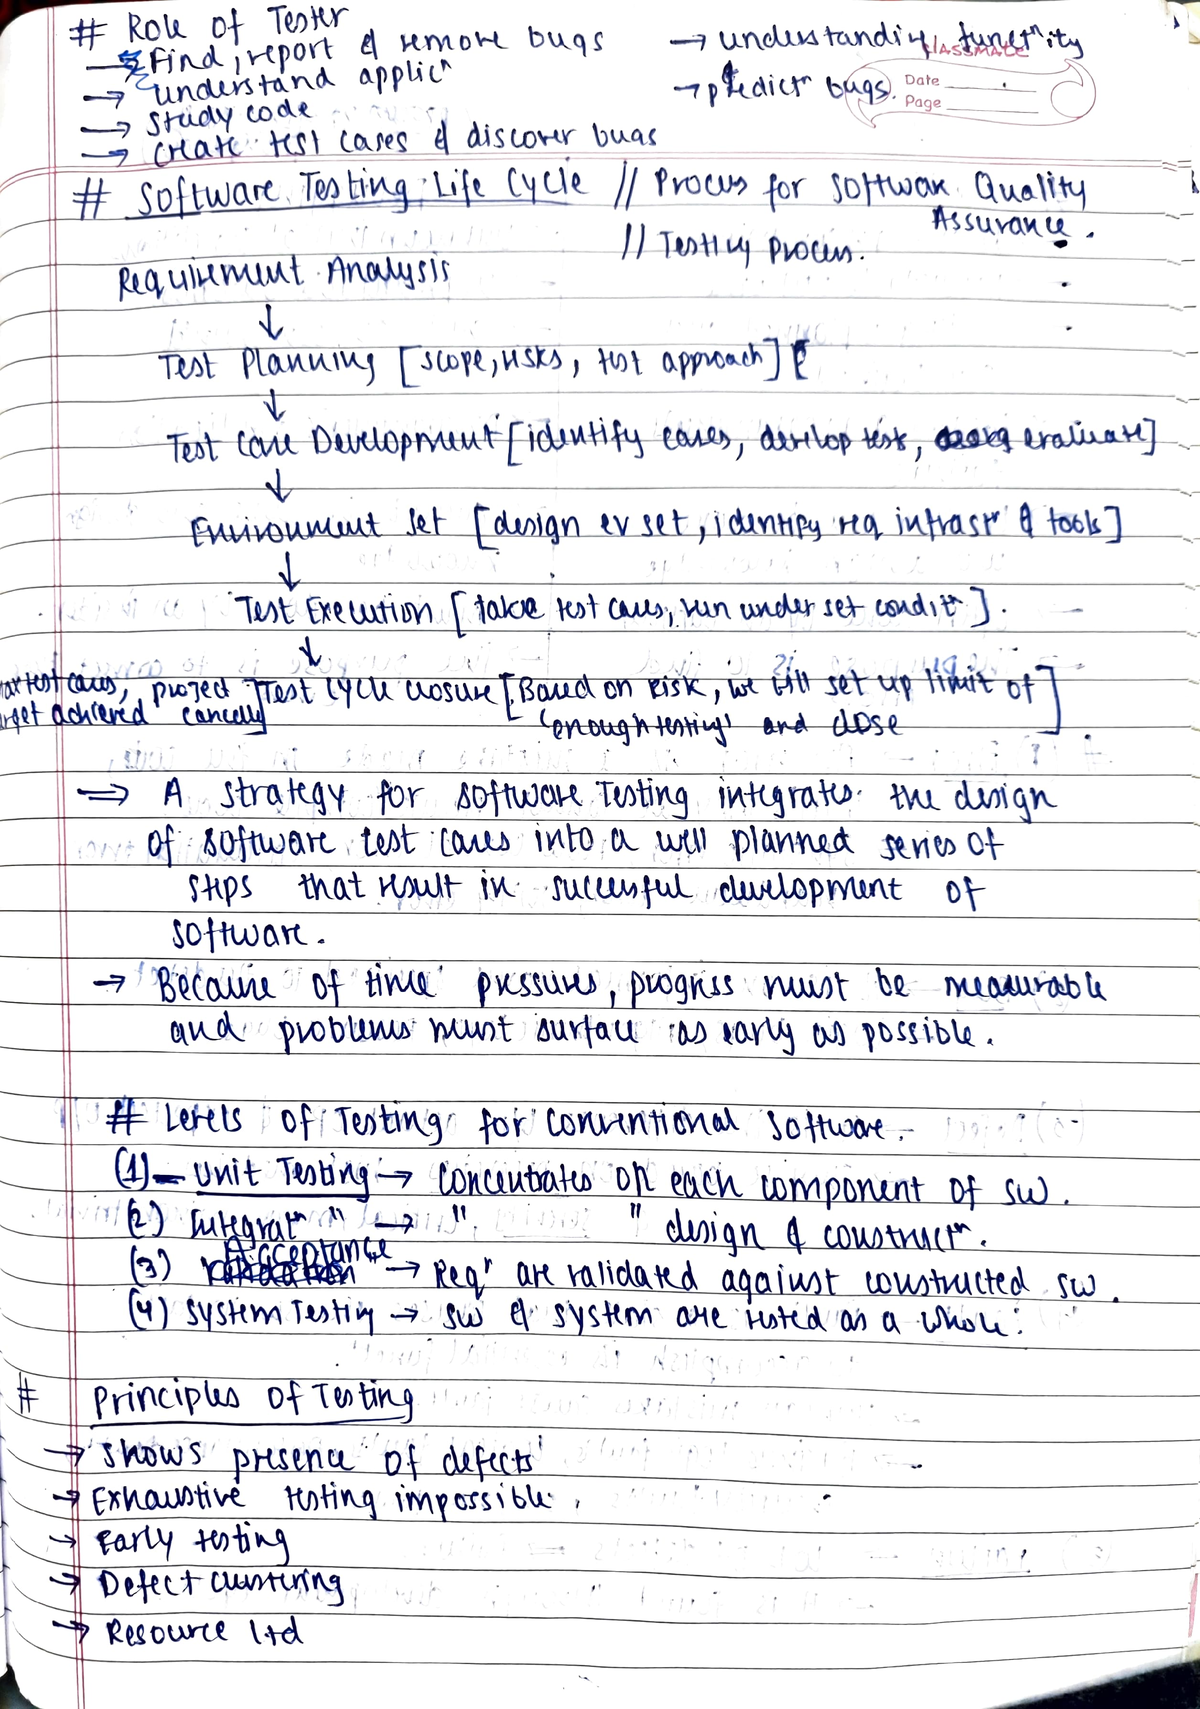 # Role of Tester
→ Find, report & remove bugs → understanding functⁿity
→ understand applicⁿ → predictⁿ bugs.
→ study code
→ create test cases & discover bugs
classmate
Date
Page
# Software Testing Life Cycle // Process for software Quality Assurance.
// Testing Process.
Requirement Analysis
↓
Test Planning [scope, risks, test approach]
↓
Test Case Development [identify cases, develop test, evaluate]
↓
Environment Set [design ev set, identify req infrastʳ & tools]
↓
Test Execution [take test cases, run under set conditⁿ].
↓
test cases, project Test cycle closure [Based on Risk, we will set up limit of
achieved cancelly] 'enough testing' and close]
⇒ A strategy for software Testing integrates the design
of software test cases into a well planned series of
steps that result in successful development of
software.
→ Because of time pressures, progress must be measurable
and problems must surface as early as possible.
# Levels of Testing for Conventional Software.
(1) Unit Testing → Concentrates on each component of sw.
(2) Integratⁿ " → " " design & constructⁿ.
(3) Acceptance " → Reqⁿ are validated against constructed sw.
(4) System Testing → sw & system are tested as a whole.
# Principles of Testing
→ shows presence of defects
→ Exhaustive testing impossible.
→ Early testing
→ Defect clustering
→ Resource ltd